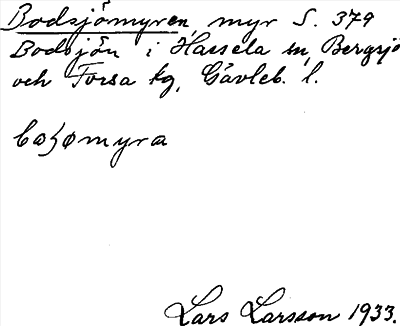 Bodsjömyren, myr S. 379
Bodsjön i Hassela sn, Bergsjö
och Forsa tg, Gävleb. l.
Lars Larsson 1933.